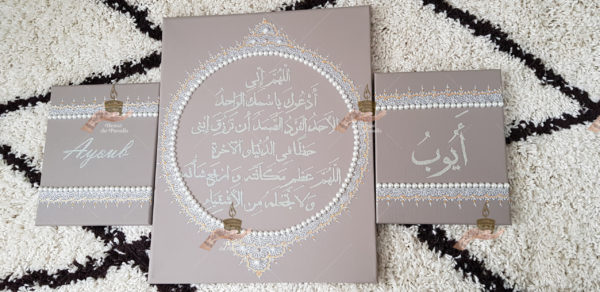 Ayoub
اللهم إني
أدعوك باسمك الواحد
الأحد الفرد الصمد أن ترزق إبني
حظا في الدنيا و الآخرة
اللهم عظم مكانته و ارفع شأنه
و لا تجعله من الأشقياء
أَيُّوبُ